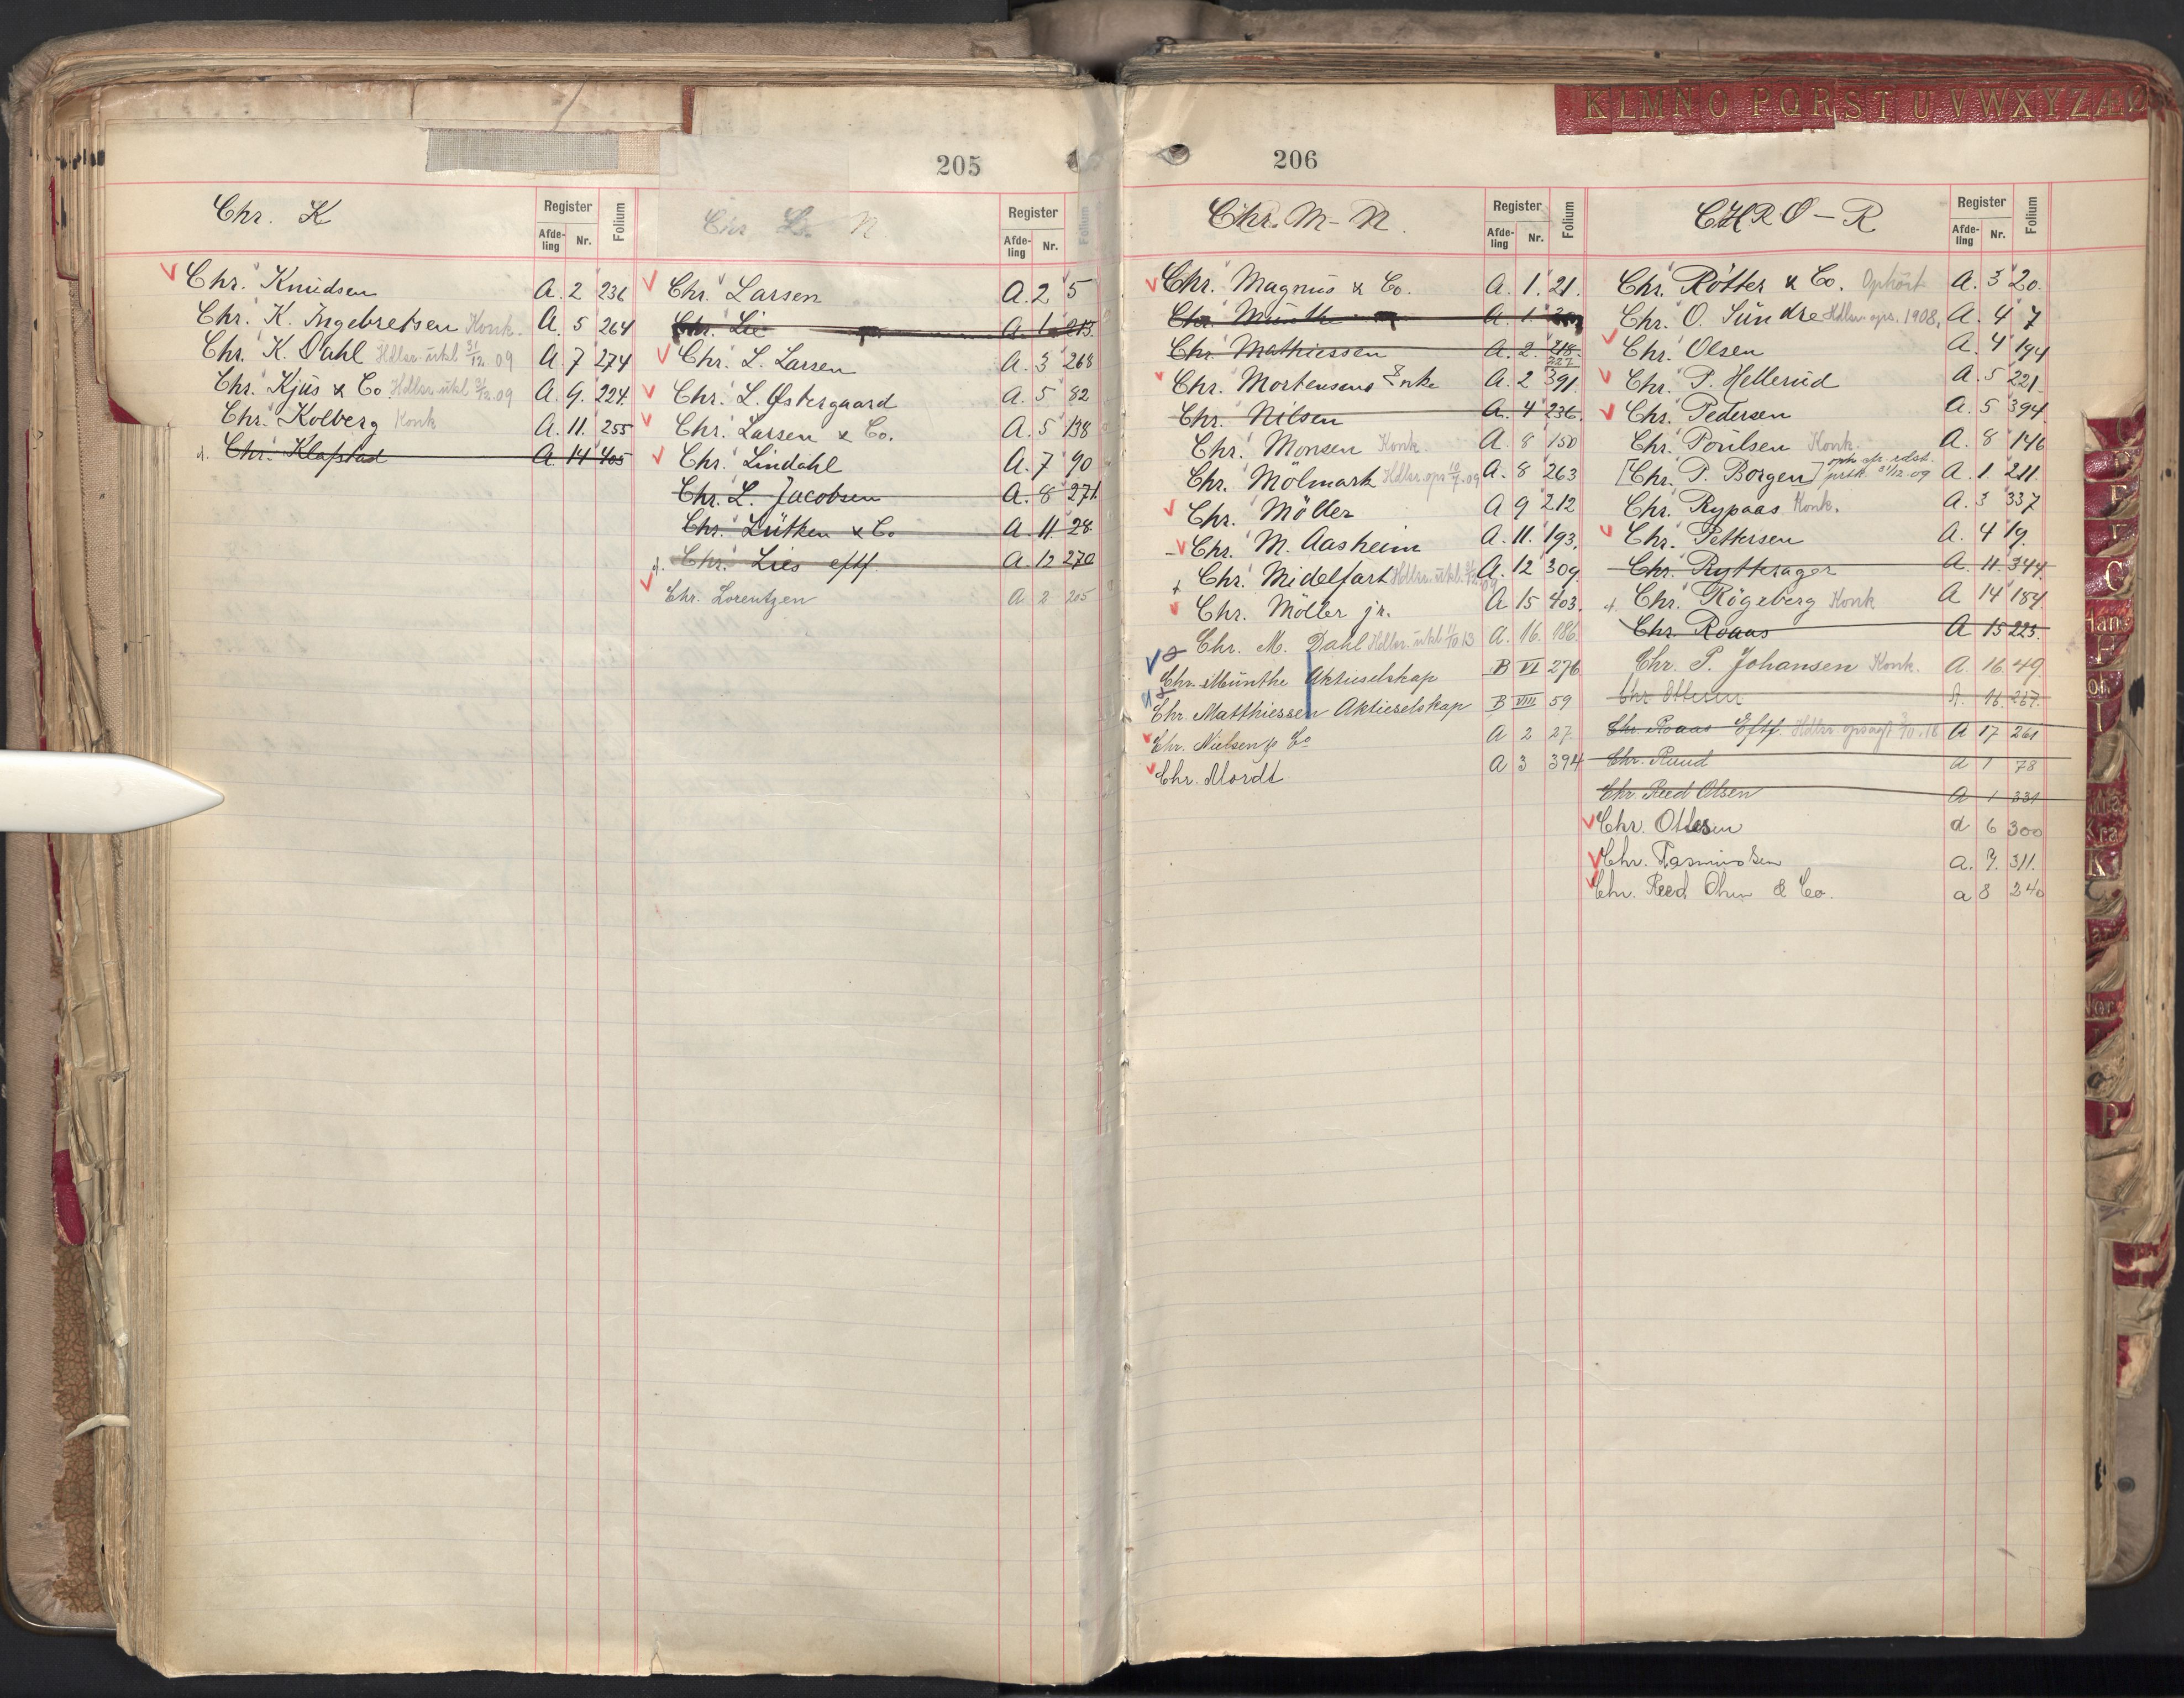 205
Chr. K
Register
Afde-
ling
Nr.
Folium
Chr. Knudsen A. 2 236
Chr. K. Ingebretsen Konk. A. 5 264
Chr. K. Dahl Hdlsr. utkl 31/12. 09 A. 7 274
Chr. Kjus & Co Hdlsr utkl 31/12.09 A. 9. 224.
Chr. Kolberg Konk A. 11. 255
Chr. Klafstad A. 14 405
Chr L. N
Register
Afde-
ling
Nr.
Folium
Chr. Larsen A. 2 5
Chr. Lie A. 1 213.
Chr. L. Larsen A. 3 268
Chr. L. Østergaard A. 5 82
Chr. Larsen & Co. A. 5 198
Chr. Lindahl A. 7 90
Chr. L. Jacobsen A. 8 271.
Chr. Lütken & Co A. 11. 28
Chr. Lies eftf. A. 12 270
Chr. Lorentzen A 2 205
KLMNOPQRSTUVWXYZÆØ
206
Chr. M-N.
Register
Afde-
ling
Nr.
Folium
Chr. Magnus & Co. A. 1. 21.
Chr. Munthe A. 1.
Chr. Mathiessen A. 2. 218. 227
Chr. Mortensens Enke A. 2 391.
Chr. Nilsen A. 4 236.
Chr. Monsen Konk. A 8 150
Chr. Mölmark Hdlsr. ops 10/7.09 A. 8 263
Chr. Möller A 9 212
Chr. M. Aasheim A. 11. 193.
Chr. Midelfart Hdlsr. utkl. 31/12 09 A. 12 309
Chr. Möller jr. A 15 403.
Chr. M. Dahl Hdlsr. utkl 1/10 13 A. 16. 186.
Chr. Munthe Aktieselskap B VI 276
Chr. Matthiessen Aktieselskap B VIII 59
Chr. Nielsen & Co A 2 27.
Chr. Mordt A 3 394
CHR O-R
Register
Afde-
ling
Nr.
Folium
Chr. Rötter & Co. Ophört A. 3 20.
Chr. O. Sundre Hdlsr. ops. 1908. A. 4 7
Chr. Olsen A. 4 194
Chr. P. Hellerud A. 5 221.
Chr. Pedersen A. 5 394.
Chr. Poulsen Konk. A. 8 146
[Chr. P. Borgen] 31/12.09 A. 1. 211.
Chr. Rypaas Konk. A. 3 337
Chr. Pettersen A. 4 19.
Chr. Rytterager A. 11. 344.
Chr. Rögeberg Konk A 14 184.
Chr. Roaas A 15 223.
Chr. P. Johansen Konk. A. 16 49.
Chr Ottesen A. 16. 267.
Chr. Roaas Eftf. Hdlsr opsagt A 17 261
Chr. Ruud A 1 78
Chr Reed Olsen A 1 331
Chr. Ottesen A 6 300
Chr. Rasmussen A. 7. 311.
Chr. Reed Olsen & Co. a 8 240